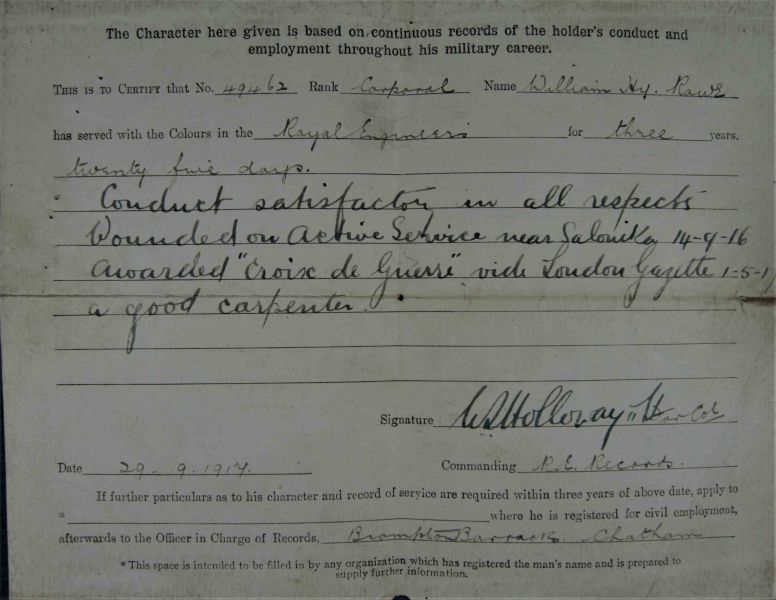 The Character here given is based on continuous records of the holder's conduct and
employment throughout his military career.
THIS IS TO CERTIFY that No. 49462 Rank Corporal Name William Hy. Rowe
has served with the Colours in the Royal Engineers for three years.
twenty five days.
* Conduct satisfactory in all respects
Wounded on Active Service near Salonika 14-9-16
Awarded "Croix de Guerre" vide London Gazette 1-5-1
a good carpenter.
Signature Holloway Col
Date 29-9-1917. Commanding R.E. Records.
If further particulars as to his character and record of service are required within three years of above date, apply to
* where he is registered for civil employment,
afterwards to the Officer in Charge of Records, Brompton Barracks Chatham
* This space is intended to be filled in by any organization which has registered the man's name and is prepared to
supply further information.